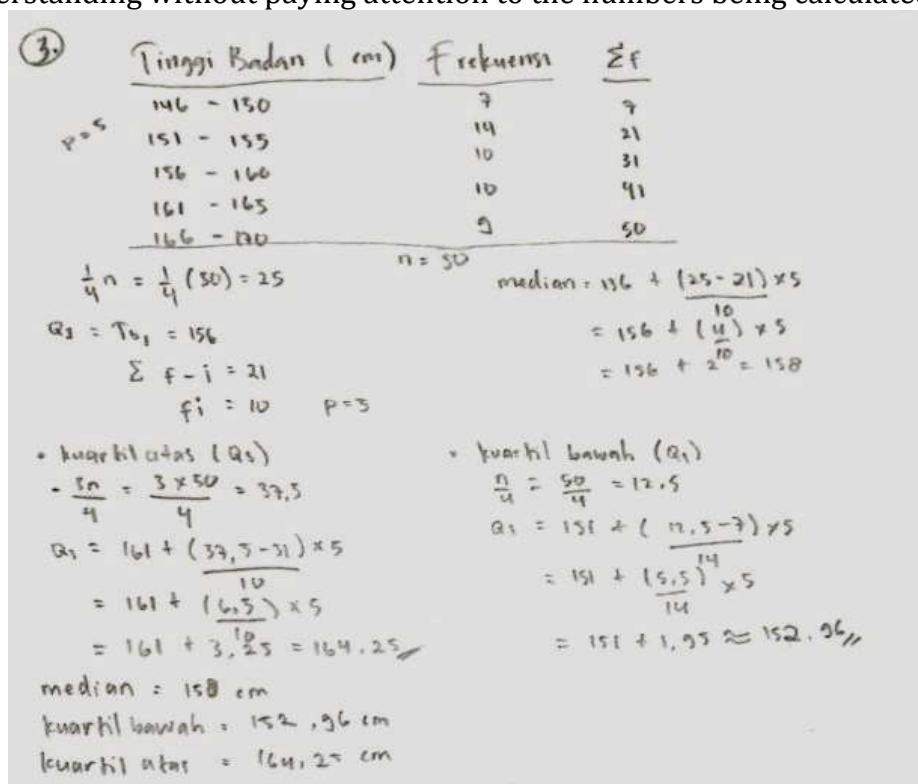 erstanding without paying attention to the numbers being calculated
3.
Tinggi Badan (cm) Frekuensi Σf
146 - 150 7 7
p=5
151 - 155 14 21
156 - 160 10 31
161 - 165 10 41
166 - 170 9 50
n = 50
1/4 n = 1/4 (50) = 25
Q3 = Tb1 = 156
Σ f - i = 21
fi = 10 p=5
median = 156 + (25-21)/10 x5
= 156 + (4)/10 x 5
= 156 + 2 = 158
• kuartil atas (Q3)
- 3n/4 = 3 x 50/4 = 37,5
Q3 = 161 + (37,5-31)/10 x 5
= 161 + (6,5)/10 x 5
= 161 + 3,25 = 164.25
• kuartil bawah (Q1)
n/4 = 50/4 = 12.5
Q1 = 151 + (12,5-7)/14 x5
= 151 + (5,5)/14 x5
= 151 + 1,95 ≈ 152.96
median = 158 cm
kuartil bawah = 152,96 cm
kuartil atas = 164,25 cm